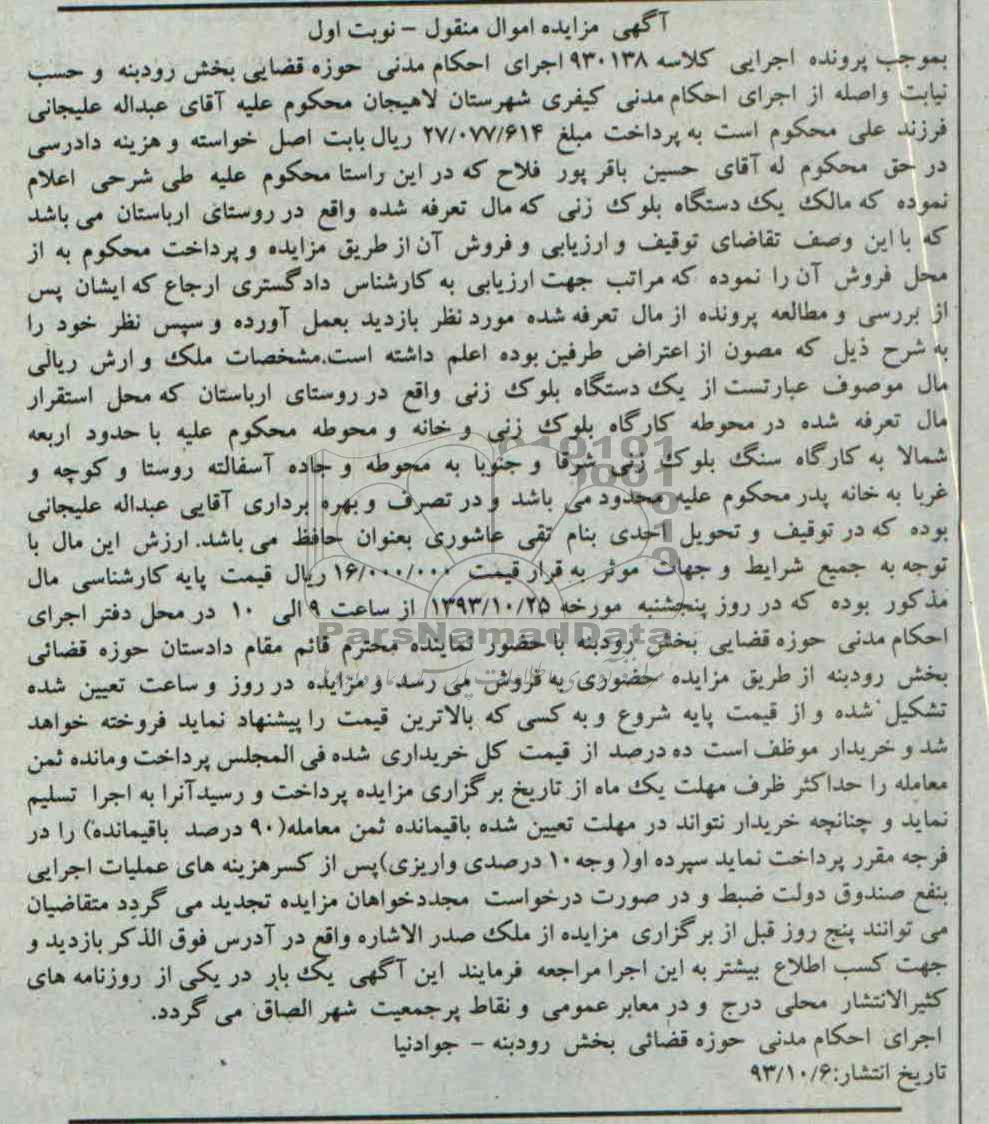 آگهی مزایده اموال منقول - نوبت اول
بموجب پرونده اجرایی کلاسه ۹۳۰۱۳۸ اجرای احکام مدنی حوزه قضایی بخش رودبنه و حسب
نیابت واصله از اجرای احکام مدنی کیفری شهرستان لاهیجان محکوم علیه آقای عبداله علیجانی
فرزند علی محکوم است به پرداخت مبلغ ۲۷/۰۷۷/۶۱۴ ریال بابت اصل خواسته و هزینه دادرسی
در حق محکوم له آقای حسین باقر پور فلاح که در این راستا محکوم علیه طی شرحی اعلام
نموده که مالک یک دستگاه بلوک زنی که مال تعرفه شده واقع در روستای ارباستان می باشد
که با این وصف تقاضای توقیف و ارزیابی و فروش آن از طریق مزایده و پرداخت محکوم به از
محل فروش آن را نموده که مراتب جهت ارزیابی به کارشناس دادگستری ارجاع که ایشان پس
از بررسی و مطالعه پرونده از مال تعرفه شده مورد نظر بازدید بعمل آورده و سپس نظر خود را
به شرح ذیل که مصون از اعتراض طرفین بوده اعلم داشته است.مشخصات ملک و ارش ریالی
مال موصوف عبارتست از یک دستگاه بلوک زنی واقع در روستای ارباستان که محل استقرار
مال تعرفه شده در محوطه کارگاه بلوک زنی و خانه و محوطه محکوم علیه با حدود اربعه
شمالا به کارگاه سنگ بلوک زنی شرقا و جنوبا به محوطه و جاده آسفالته روستا و کوچه و
غربا به خانه پدر محکوم علیه محدود می باشد و در تصرف و بهره برداری آقایی عبداله علیجانی
بوده که در توقیف و تحویل احدی بنام تقی عاشوری بعنوان حافظ می باشد. ارزش این مال با
توجه به جمیع شرایط و جهات موثر به قرار قیمت ۱۶/۰۰۰/۰۰۰ ریال قیمت پایه کارشناسی مال
مذکور بوده که در روز پنجشنبه مورخه ۱۳۹۳/۱۰/۲۵ از ساعت ۹ الی ۱۰ در محل دفتر اجرای
احکام مدنی حوزه قضایی بخش رودبنه با حضور نماینده محترم قائم مقام دادستان حوزه قضائی
بخش رودبنه از طریق مزایده حضوری به فروش می رسد و مزایده در روز و ساعت تعیین شده
تشکیل شده و از قیمت پایه شروع و به کسی که بالاترین قیمت را پیشنهاد نماید فروخته خواهد
شد و خریدار موظف است ده درصد از قیمت کل خریداری شده فی المجلس پرداخت ومانده ثمن
معامله را حداکثر ظرف مهلت یک ماه از تاریخ برگزاری مزایده پرداخت و رسید آنرا به اجرا تسلیم
نماید و چنانچه خریدار نتواند در مهلت تعیین شده باقیمانده ثمن معامله(۹۰ درصد باقیمانده) را در
فرجه مقرر پرداخت نماید سپرده او( وجه ۱۰ درصدی واریزی)پس از کسرهزینه های عملیات اجرایی
بنفع صندوق دولت ضبط و در صورت درخواست مجددخواهان مزایده تجدید می گردد متقاضیان
می توانند پنج روز قبل از برگزاری مزایده از ملک صدر الاشاره واقع در آدرس فوق الذکر بازدید و
جهت کسب اطلاع بیشتر به این اجرا مراجعه فرمایند این آگهی یک بار در یکی از روزنامه های
کثیرالانتشار محلی درج و در معابر عمومی و نقاط پرجمعیت شهر الصاق می گردد.
اجرای احکام مدنی حوزه قضائی بخش رودبنه - جوادنیا
تاریخ انتشار:۹۳/۱۰/۶
ParsNamadData